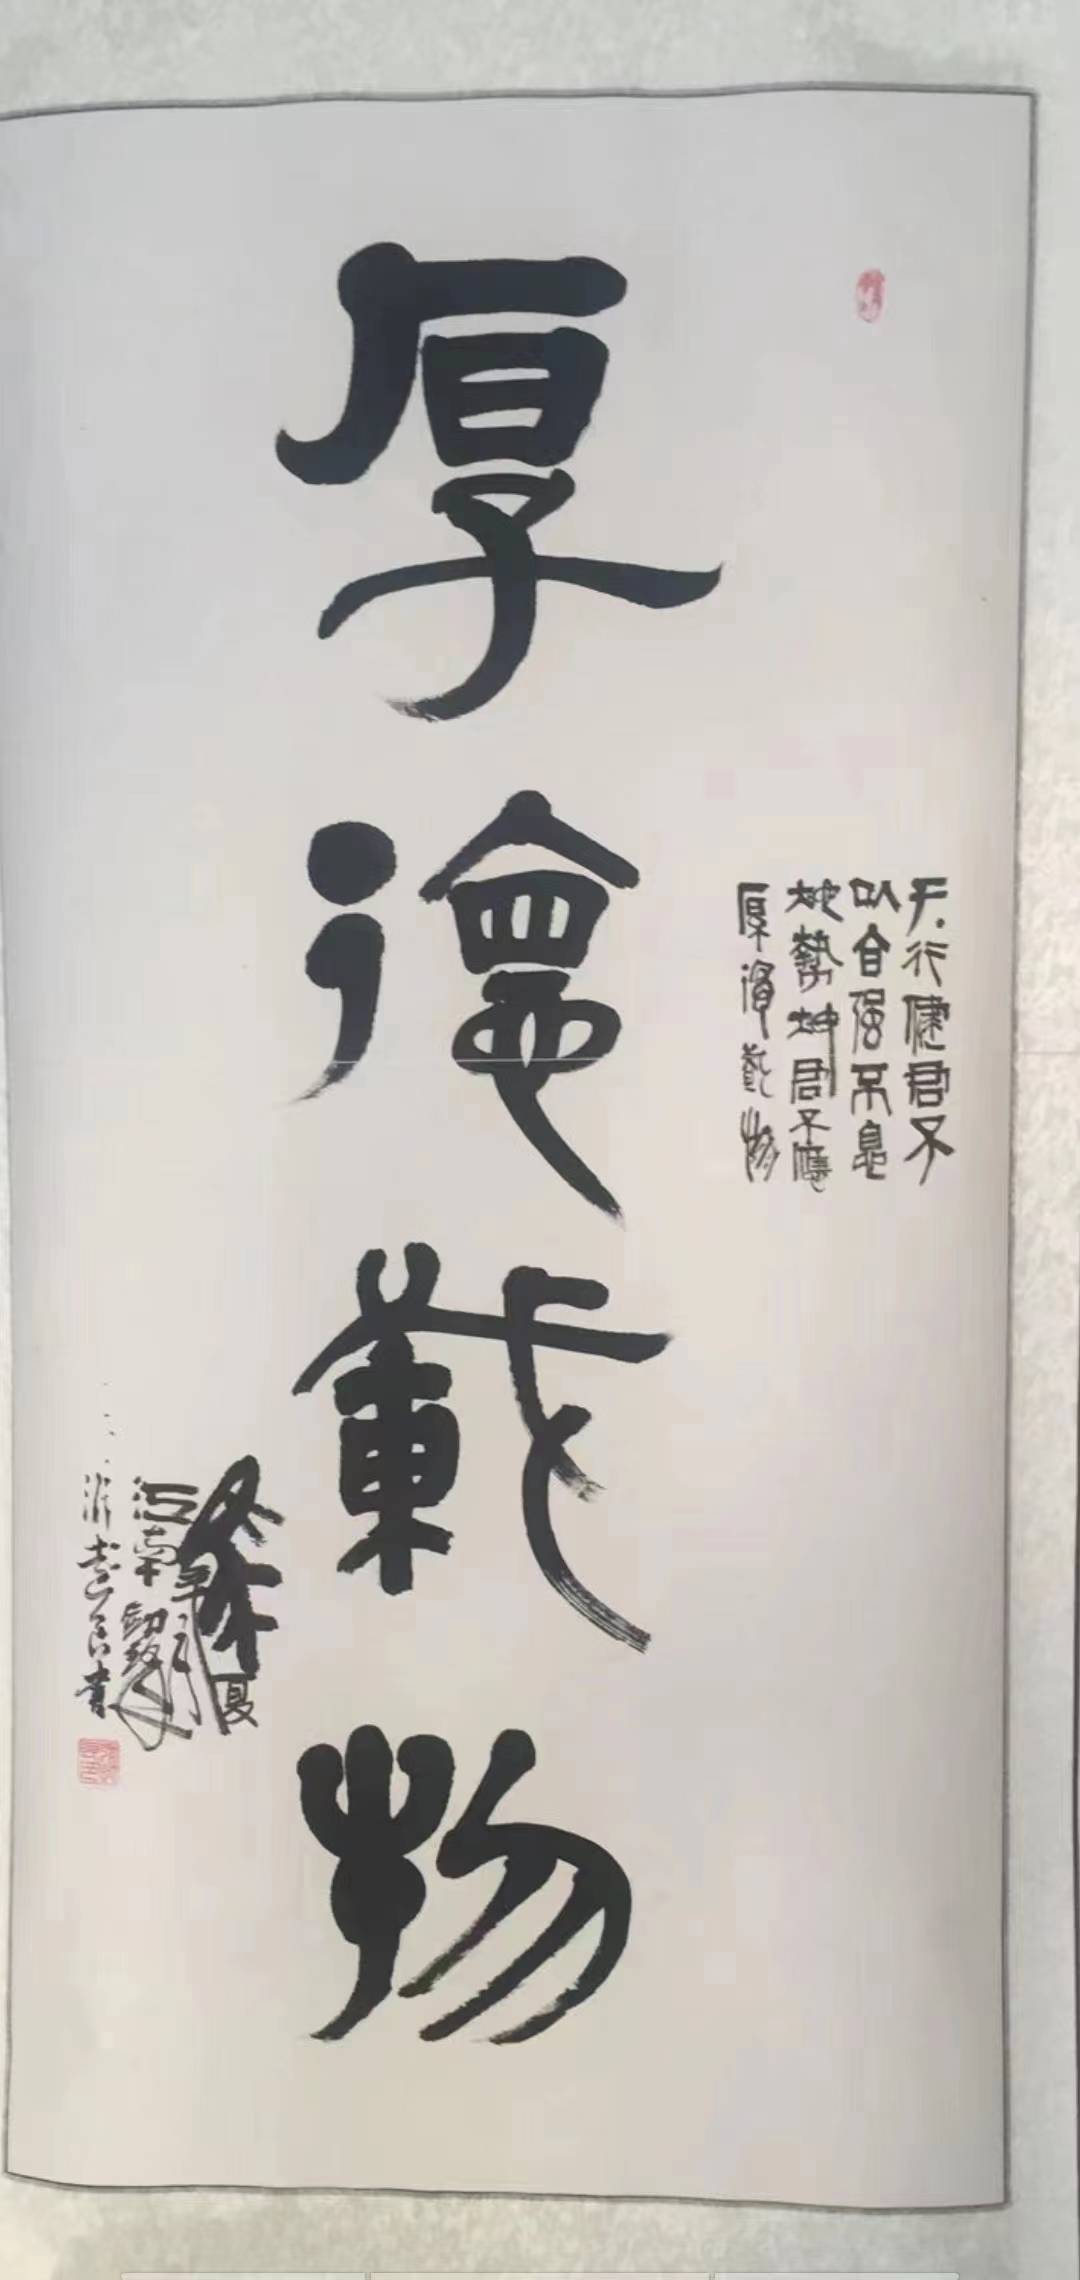 天行健君子
以自强不息
地勢坤君子應
厚德載物
厚德載物
夏
江南
書